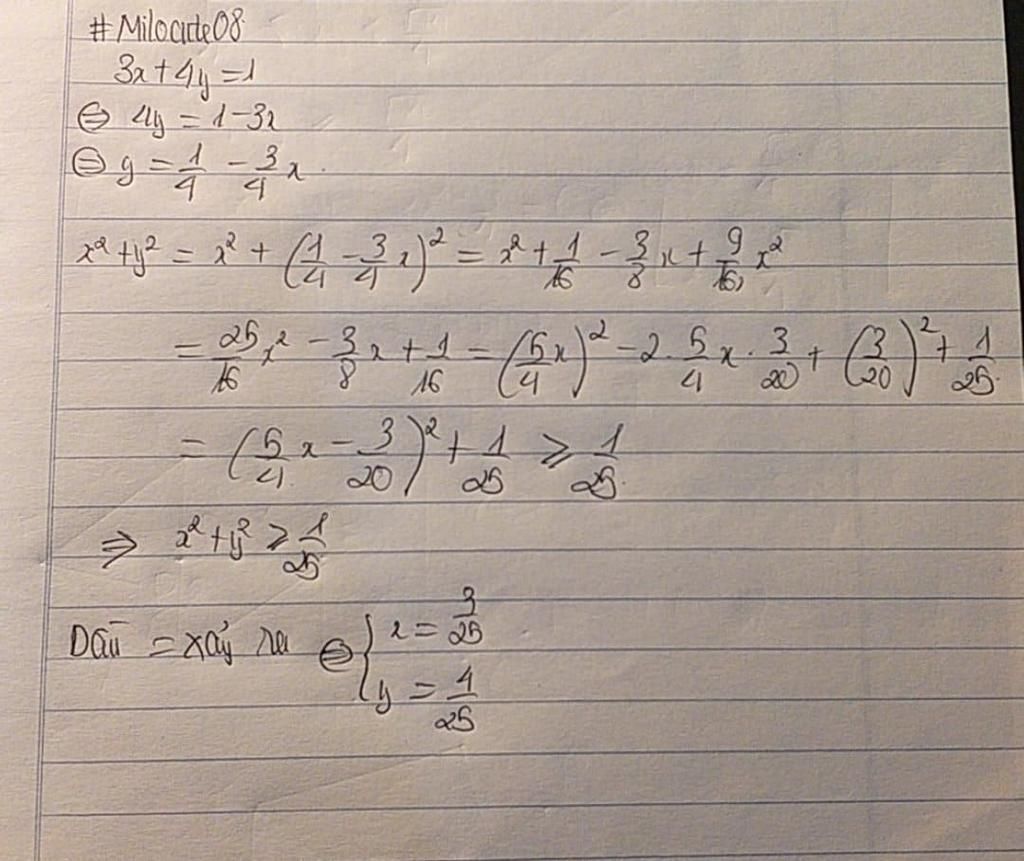 #Milocute08
3x + 4y = 1
⇔ 4y = 1 - 3x
⇔ y = 1/4 - 3/4 x.
x² + y² = x² + (1/4 - 3/4 x)² = x² + 1/16 - 3/8 x + 9/16 x²
= 25/16 x² - 3/8 x + 1/16 = (5/4 x)² - 2 . 5/4 x . 3/20 + (3/20)² + 1/25
= (5/4 x - 3/20)² + 1/25 ⩾ 1/25
⇒ x² + y² ⩾ 1/25
Dấu = xảy ra ⇔ { x = 3/25
y = 4/25